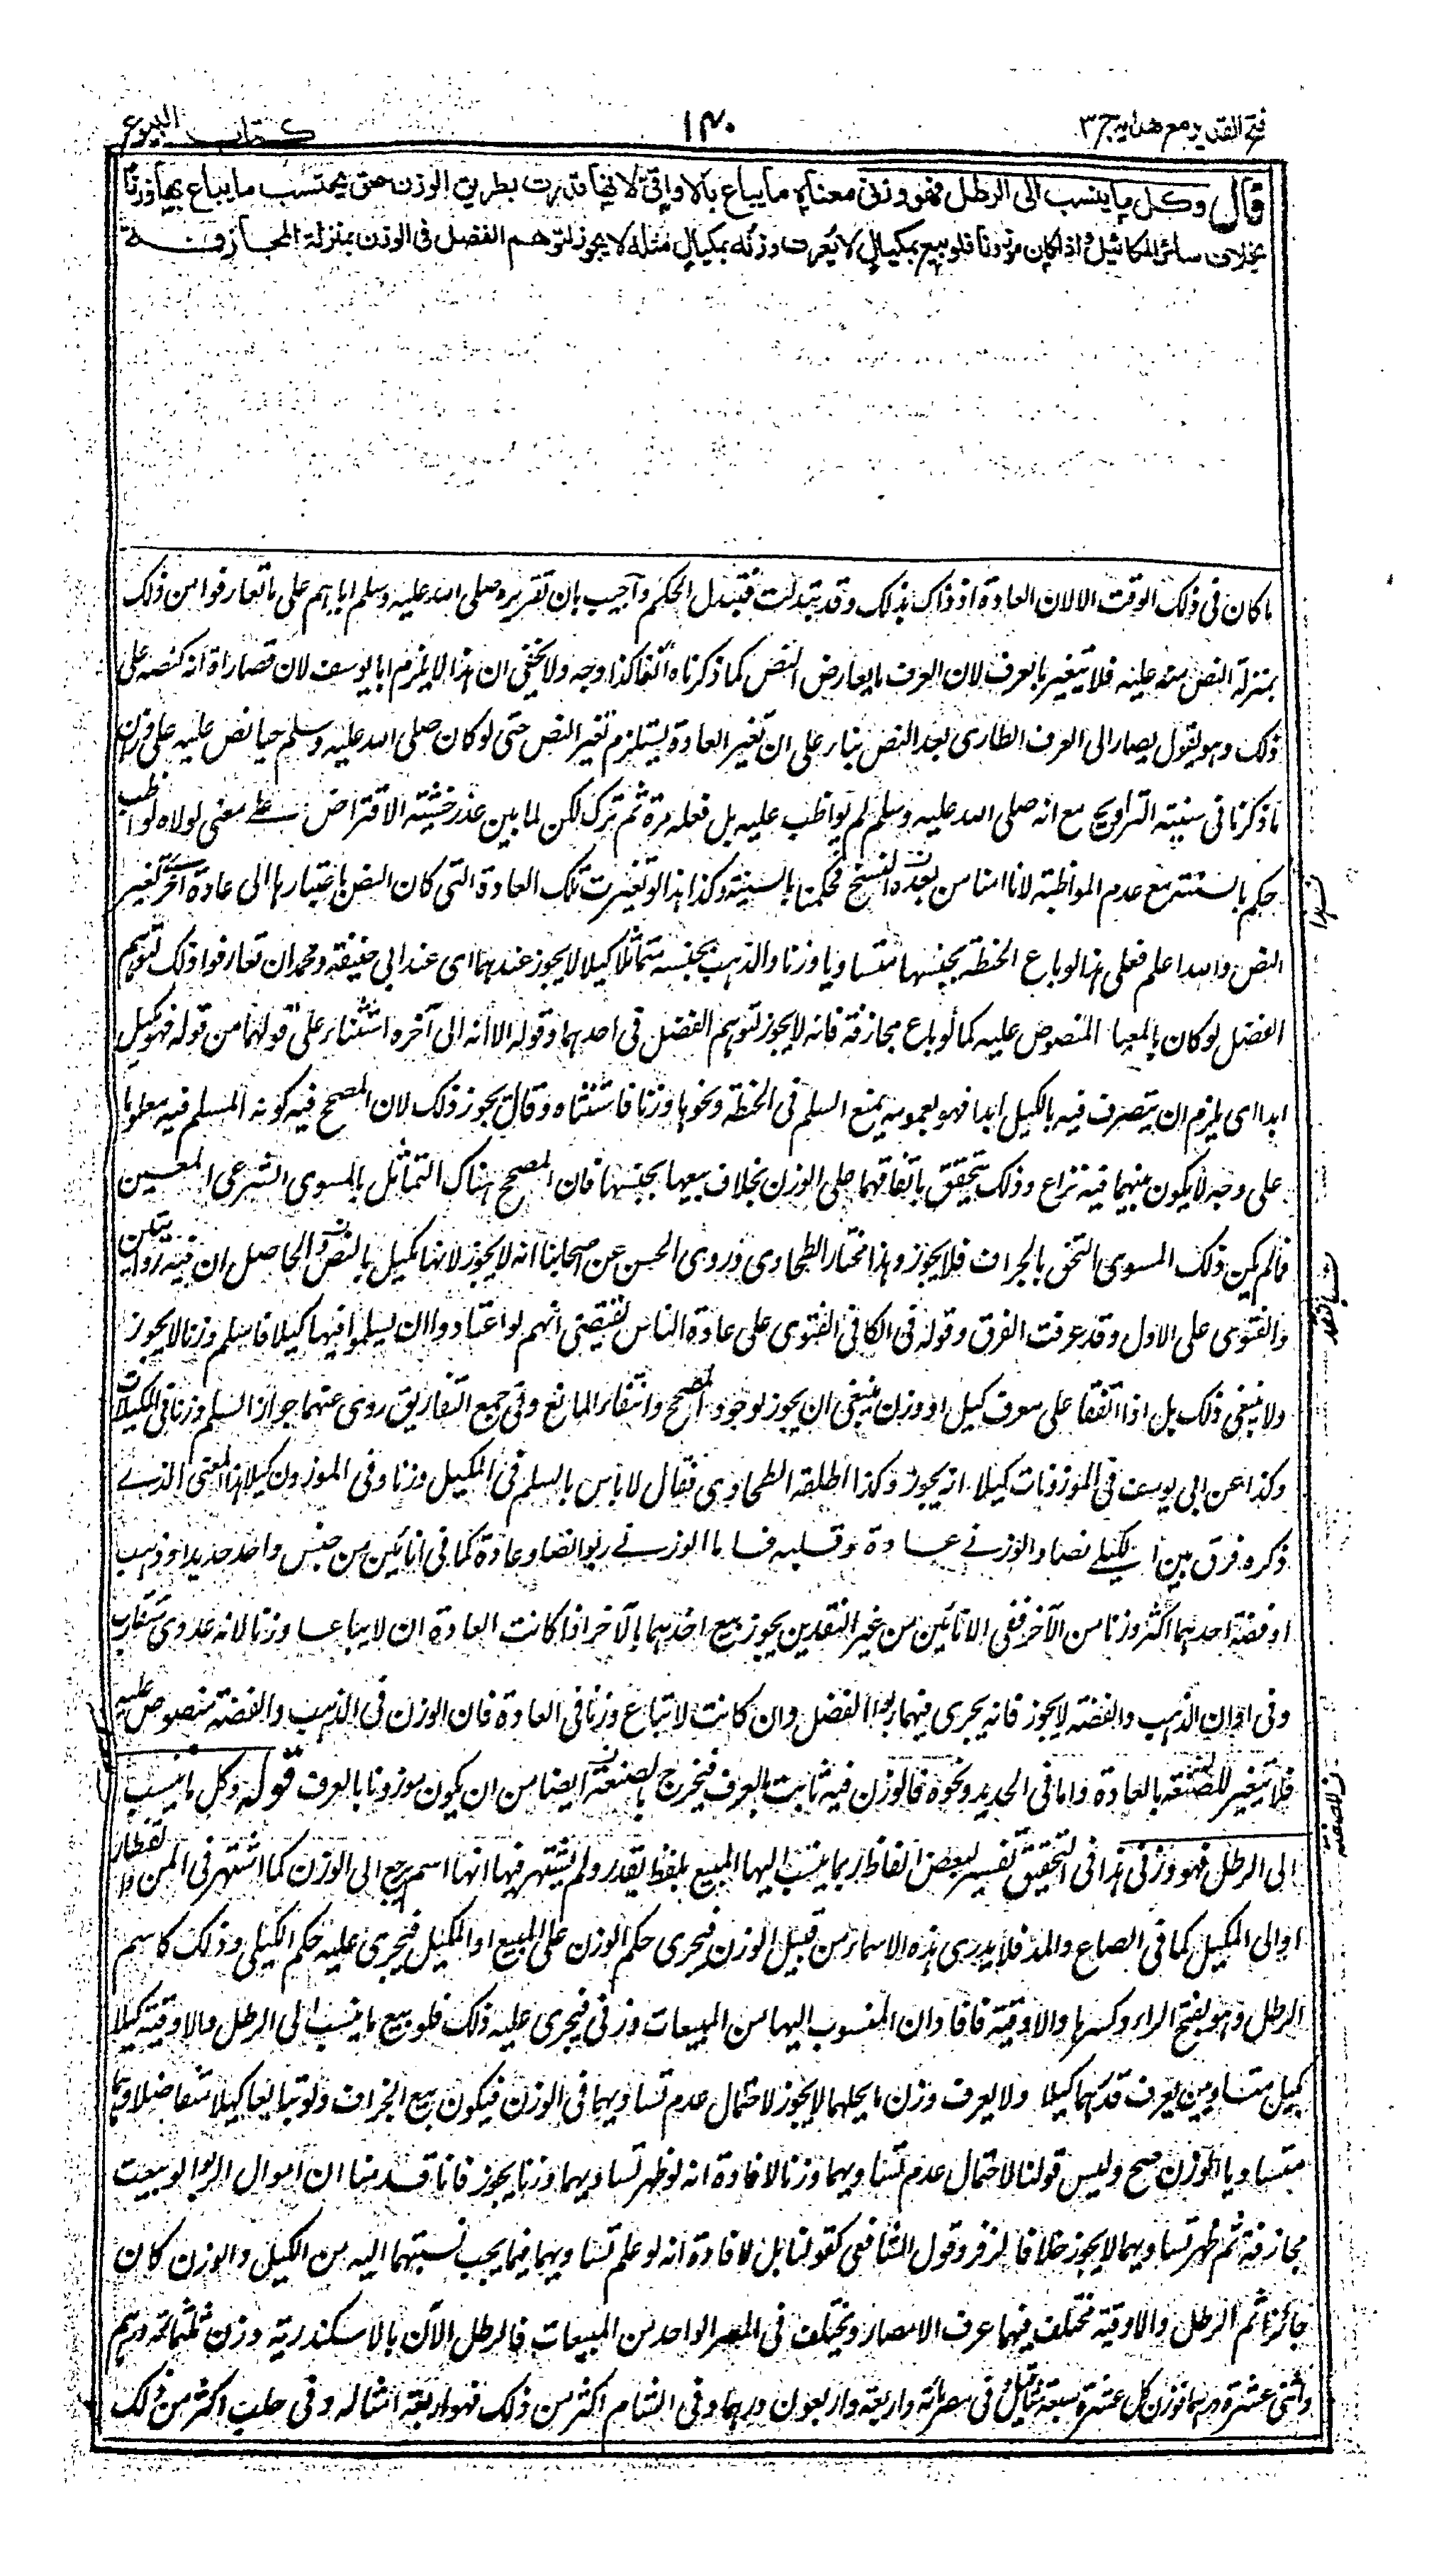 فتح القدير مع هدايه ج ٣
١٤٠
كتاب البيوع
قال وكل ما ينسب الى الرطل فهو وزنى معناه ما يباع بالاواقى لانها قدرت بطريق الوزن حتى يحتسب ما يباع بها وزنا
بخلاف سائر المكائيل واذا كان موزونا فلو بيع بمكيال لا يعرف وزنه بمكيال مثله لا يجوز لتوهم الفضل فى الوزن بمنزلة المجازفة
ما كان فى ذلك الوقت الا لان العادة اذ ذاك بذلك وقد تبدلت فتبدل الحكم واجيب بان تقريره صلى الله عليه وسلم اياهم على ما تعارفوا من ذلك
بمنزلة النص منه عليه فلا يتغير بالعرف لان العرف لا يعارض النص كما ذكرناه آنفا كذا وجه ولا يخفى ان هذا لا يلزم ابا يوسف لان قصاراه انه كنصه على
ذلك وهو يقول يصار الى العرف الطارى بعد النص بناء على ان تغير العادة يستلزم تغير النص حتى لو كان صلى الله عليه وسلم حيا نص عليه على وزان
ما ذكرنا فى سنية التراويح مع انه صلى الله عليه وسلم لم يواظب عليه بل فعله مرة ثم ترك لكن لما بين عذر خشية الافتراض على معنى لولاه لواظب
حكم بالسنية مع عدم المواظبة لانا امنا من بعده النسخ فحكمنا بالسنية وكذا هذا لو تغيرت تلك العادة التى كان النص باعتبارها الى عادة اخرى تغير
النص والله اعلم فعلى هذا لو باع الحنطة بجنسها متساويا وزنا والذهب بجنسه متماثلا كيلا لا يجوز عندهما اى عند ابى حنيفة ومحمد ان تعارفوا ذلك لتوهم
الفضل لو كان بالمعيار المنصوص عليه كما لو باع مجازفة فانه لا يجوز لتوهم الفضل فى احدهما وقوله الا انه الى آخره استثناء على قولهما من قوله فهو مكيل
ابدا اى يلزم ان يتصرف فيه بالكيل ابدا فهو بعمومه يمنع السلم فى الحنطة ونحوها وزنا فاستثناه وقال يجوز ذلك لان المصحح فيه كونه المسلم فيه معلوما
على وجه لا يكون بينهما فيه نزاع وذلك يتحقق باتفاقهما على الوزن بخلاف بيعها بجنسها فان المصحح هناك التماثل بالمسوى الشرعى المعين
فما لم يكن ذلك المسوى التحق بالجزاف فلا يجوز وهذا مختار الطحاوى وروى الحسن عن اصحابنا انه لا يجوز لانها مكيل بالنص والحاصل ان فيه روايتين
والفتوى على الاول وقد عرفت الفرق وقوله فى الكافى الفتوى على عادة الناس يقتضى انهم لو اعتادوا ان يسلموا فيها كيلا فاسلم وزنا لا يجوز
ولا ينبغى ذلك بل اذا اتفقا على معرف كيل او وزن ينبغى ان يجوز لوجود المصحح وانتفاء المانع وفى جمع التفاريق روى عنهما جواز السلم وزنا فى المكيلات
وكذا عن ابى يوسف فى الموزونات كيلا انه يجوز وكذا اطلقه الطحاوى فقال لا باس بالسلم فى المكيل وزنا وفى الموزون كيلا هذا المعنى الذى
ذكره فرق بين الكيلى نصا والوزنى عادة وقلبه فاما الوزنى ربوا نصا وعادة كما فى انائين من جنس واحد حديد او ذهب
او فضة احدهما اكثر وزنا من الآخر ففى الانائين من غير النقدين يجوز بيع احدهما بالآخر اذا كانت العادة ان لا يباعا وزنا لانه عددى متقارب
وفى اوانى الذهب والفضة لا يجوز فانه يجرى فيهما ربوا الفضل وان كانت لا تباع وزنا فى العادة فان الوزن فى الذهب والفضة منصوص عليه
فلا يتغير للصنعة بالعادة واما فى الحديد ونحوه فالوزن فيه ثابت بالعرف فيخرج بالصنعة ايضا من ان يكون موزونا بالعرف قوله وكل ما ينسب
الى الرطل فهو وزنى هذا فى التحقيق تفسير لبعض الفاظ ربما ينسب اليها المبيع بلفظ يقدر ولم يشتهر فيها انها اسم يرجع الى الوزن كما اشتهر فى المن والقنطار
او الى المكيل كما فى الصاع والمد فلا يدرى هذه الاسماء من قبيل الوزن فيجرى حكم الوزن على المبيع او المكيل فيجرى عليه حكم الكيلى وذلك كاسم
الرطل وهو بفتح الراء وكسرها والاوقية فافاد ان المنسوب اليها من المبيعات وزنى فيجرى عليه ذلك فلو بيع ما ينسب الى الرطل والاوقية كيلا
بكيل متساويين يعرف قدرهما كيلا ولا يعرف وزن ما يحلهما لا يجوز لاحتمال عدم تساويهما فى الوزن فيكون بيع الجزاف ولو تبايعا كيلا متفاضلا وهما
متساويا الوزن صح وليس قولنا لاحتمال عدم تساويهما وزنا لافادة انه لو ظهر تساويهما وزنا يجوز فانا قدمنا ان اموال الربوا لو بيعت
مجازفة ثم ظهر تساويهما لا يجوز خلافا لزفر وقول الشافعى كقولنا بل لافادة انه لو علم تساويهما فيما يجب نسبتهما اليه من الكيل والوزن كان
جائزا ثم الرطل والاوقية مختلف فيهما عرف الامصار ويختلف فى المصر الواحد من المبيعات فالرطل الآن بالاسكندرية وزن ثلثمائة درهم
واثنى عشرة درهما توزن كل عشرة سبعة مثاقيل فى مصر مائة واربعة واربعون درهما وفى الشام اكثر من ذلك فهو اربعة امثاله وفى حلب اكثر من ذلك